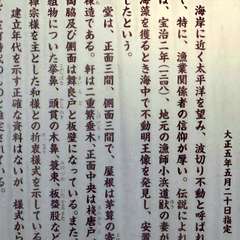 大正五年五月二十日指定
海岸に近く太平洋を望み、波切り不動と呼ば
、特に、漁業関係者の信仰が厚い。伝説によれ
は、宝治二年（一二四八）、地元の漁師小浜道獣の妻が
海藻を獲るとき海中で不動明王像を発見し、安置
したという。
堂は、正面三間、側面三間で、屋根は茅葺の寄
棟造である。軒は二重繁垂木、正面中央は桟唐戸
脇及び側面は蔀戸と板壁になっている。また
組物についた拳鼻、頭貫の木鼻、蓑束、板蟇股など
禅宗様を主とした和様との折衷様式を示している
建立年代を示す正確な資料はないが、様式から